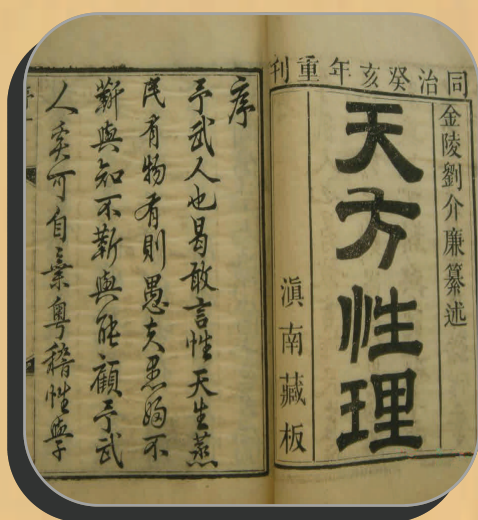 同治癸亥年重刊
金陵劉介廉纂述
天方性理
滇南藏板
序
予武人也曷敢言性天生蒸
民有物有則愚夫愚婦不
靳與知不靳與能顧予武
人奚可自棄粵稽性學